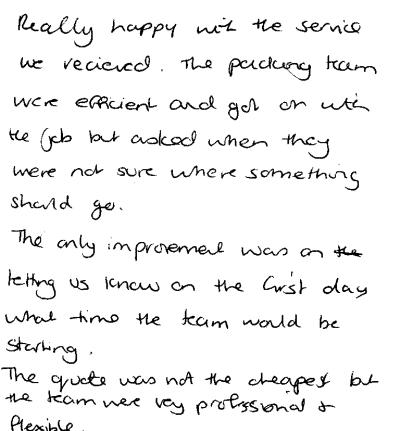 Really happy with the service
we recieved. The packing team
were efficient and got on with
the job but asked when they
were not sure where something
should go.
The only improvement was on the
letting us know on the first day
what time the team would be
starting.
The quote was not the cheapest but
the team were very professional &
flexible.